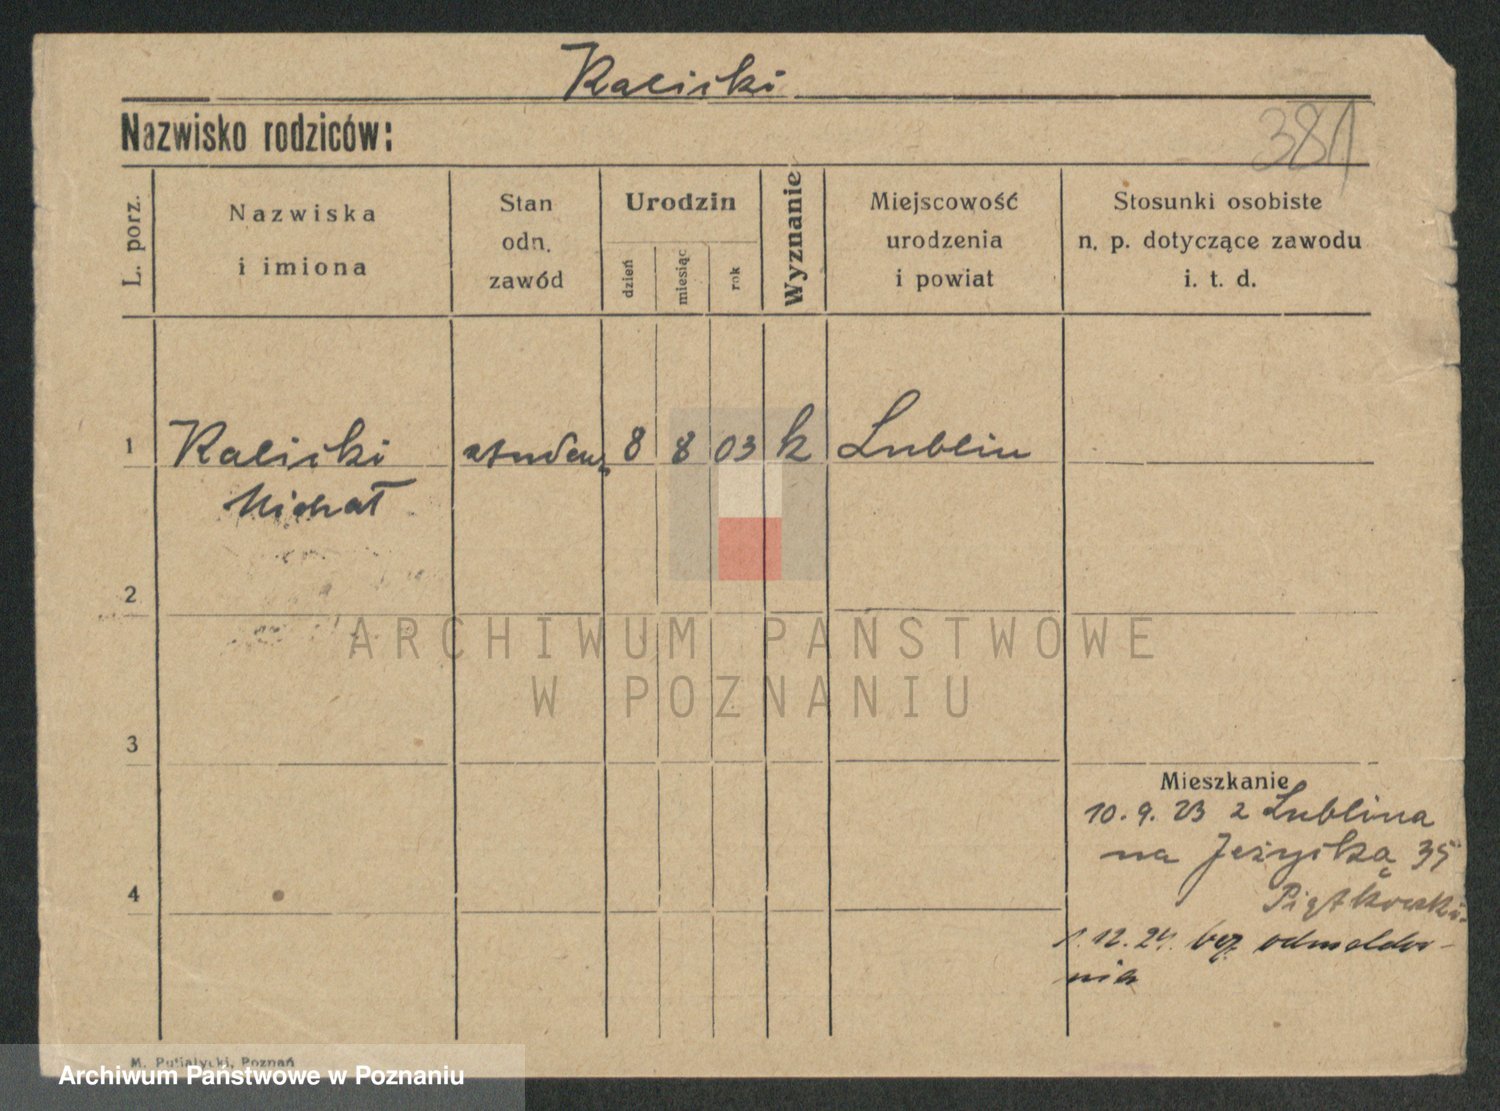 Kaliski
381
Nazwisko rodziców:
L. porz.
Nazwiska
i imiona
Stan
odn.
zawód
Urodzin
dzień
miesiąc
rok
Wyznanie
Miejscowość
urodzenia
i powiat
Stosunki osobiste
n. p. dotyczące zawodu
i. t. d.
1 Kaliski student 8 8 03 k Lublin
Michał
2
ARCHIWUM PAŃSTWOWE
W POZNANIU
3
Mieszkanie
10.9.23 z Lublina
na Jeżycką 35
4
Piątkowski
1.12.24. bez odmeldo-
nia
M. Putiatycki, Poznań
Archiwum Państwowe w Poznaniu